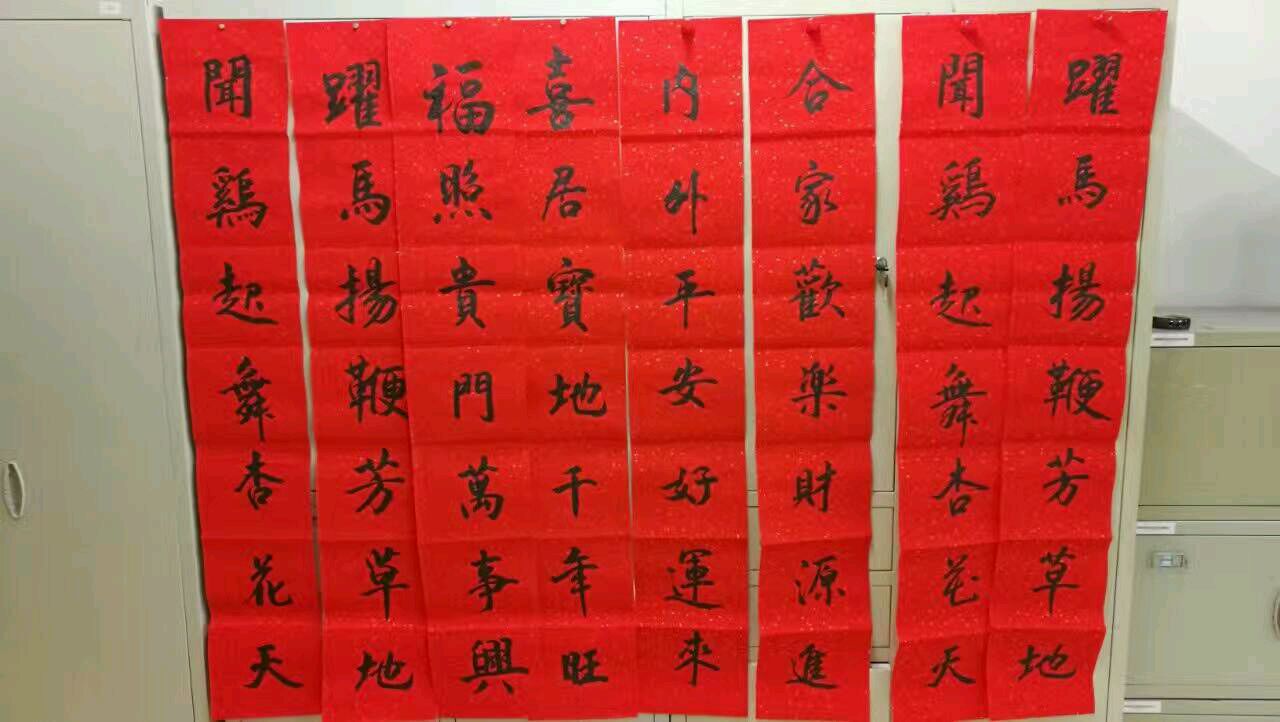 躍馬揚鞭芳草地
聞鷄起舞杏花天
合家歡樂財源進
內外平安好運來
喜居寶地千年旺
福照貴門萬事興
躍馬揚鞭芳草地
聞鷄起舞杏花天